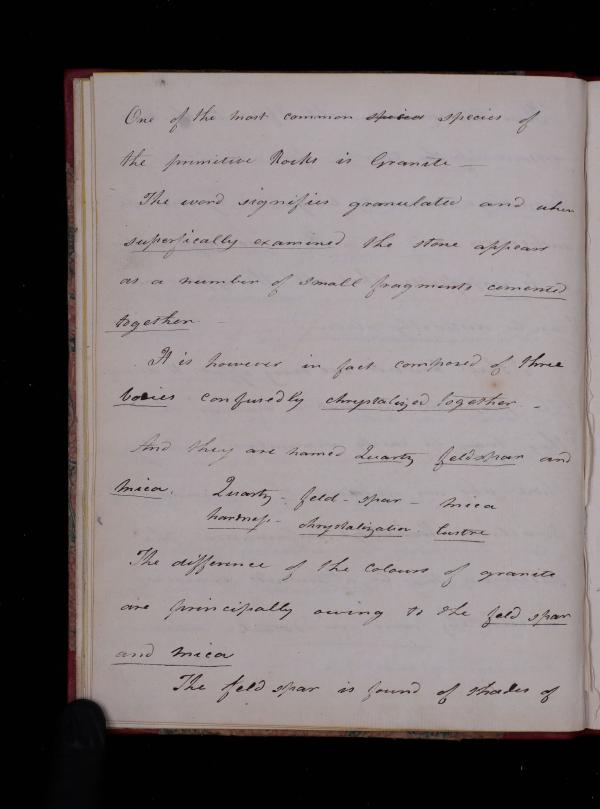 One of the most common species species of
the primitive Rocks is Granite —
The word signifies granulated and when
superfically examined the stone appears
as a number of small fragments cemented
together —
It is however in fact composed of three
bodies confusedly chrystalized together. -
And they are named Quartz feldspar and
mica. Quartz - feld - spar - mica
hardness - chrystalization lustre
The difference of the colours of granite
are principally owing to the feld spar
and mica
The feld spar is found of shades of